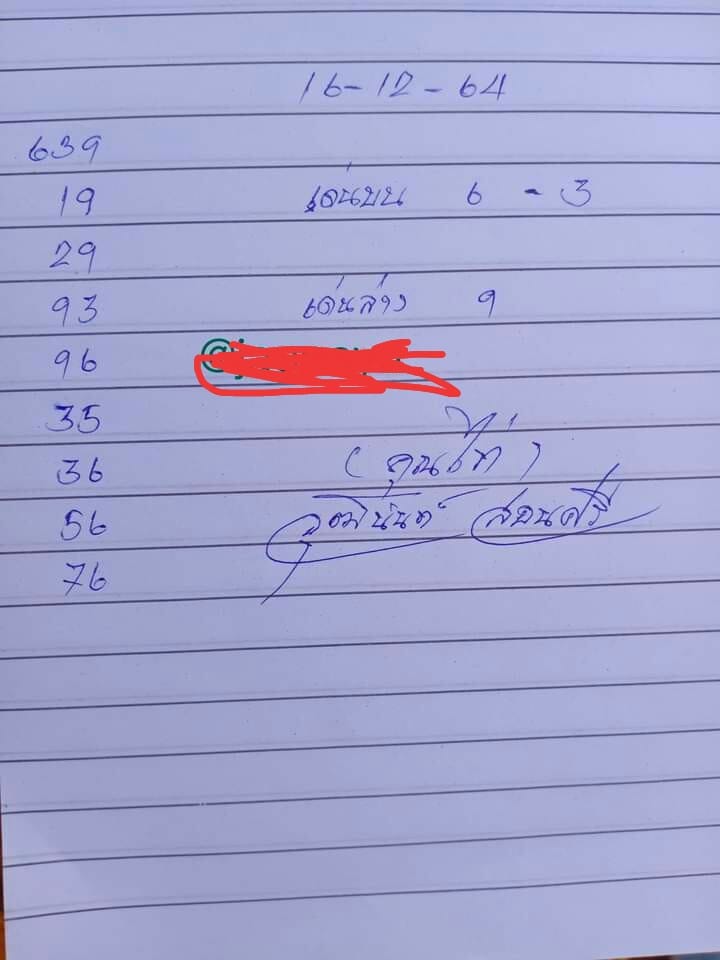 16-12-64
639
19 เด่นบน 6 - 3
29
93 เด่นล่าง 9
96
35
36
56 สอนศรี
76